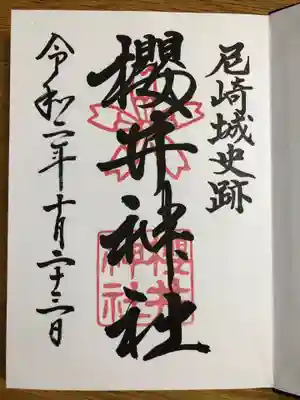 尼崎城史跡
櫻井神社
櫻井
神社
令和二年十月二十三日